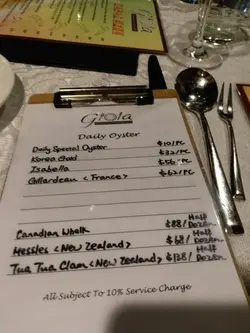 Gioia
Daily Oyster
Daily Special Oyster $10/PC
Korea Gold $32/PC
Isabella $56/PC
Gillardeau <France> $62/PC
Canadian Whelk $88/Half Dozen
Mussles <New Zealand> $68/Half Dozen
Tua Tua Clam <New Zealand> $138/Half Dozen
All Subject To 10% Service Charge